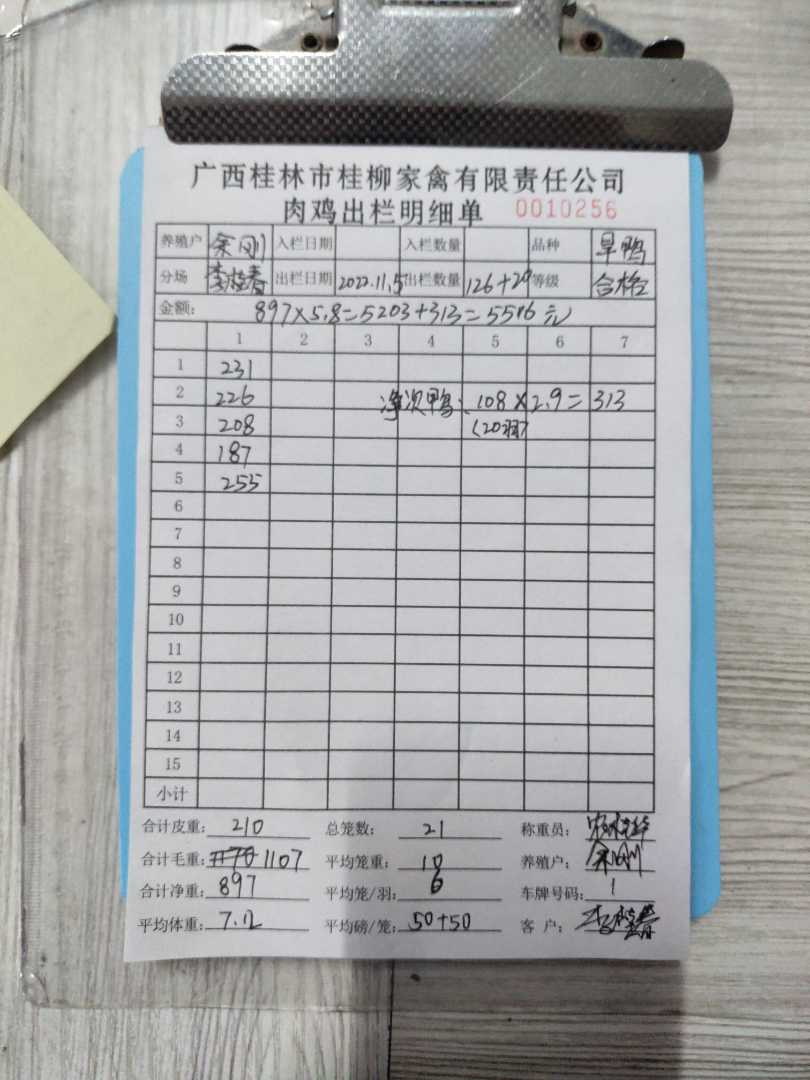 广西桂林市桂柳家禽有限责任公司
肉鸡出栏明细单 0010256
养殖户 余刚 入栏日期 入栏数量 品种 旱鸭
分场 出栏日期 2022.11.5 出栏数量 126+29 等级 合格
金额: 897×5.8=5203+313=5516元
1 2 3 4 5 6 7
1 231
2 226 净次鸭: 108×2.9=313
3 208 (20羽)
4 187
5 255
6
7
8
9
10
11
12
13
14
15
小计
合计皮重: 210 总笼数: 21 称重员:
合计毛重: 1107 平均笼重: 10 养殖户: 余刚
合计净重: 897 平均笼/羽: 6 车牌号码: 1
平均体重: 7.12 平均磅/笼: 50+50 客户: